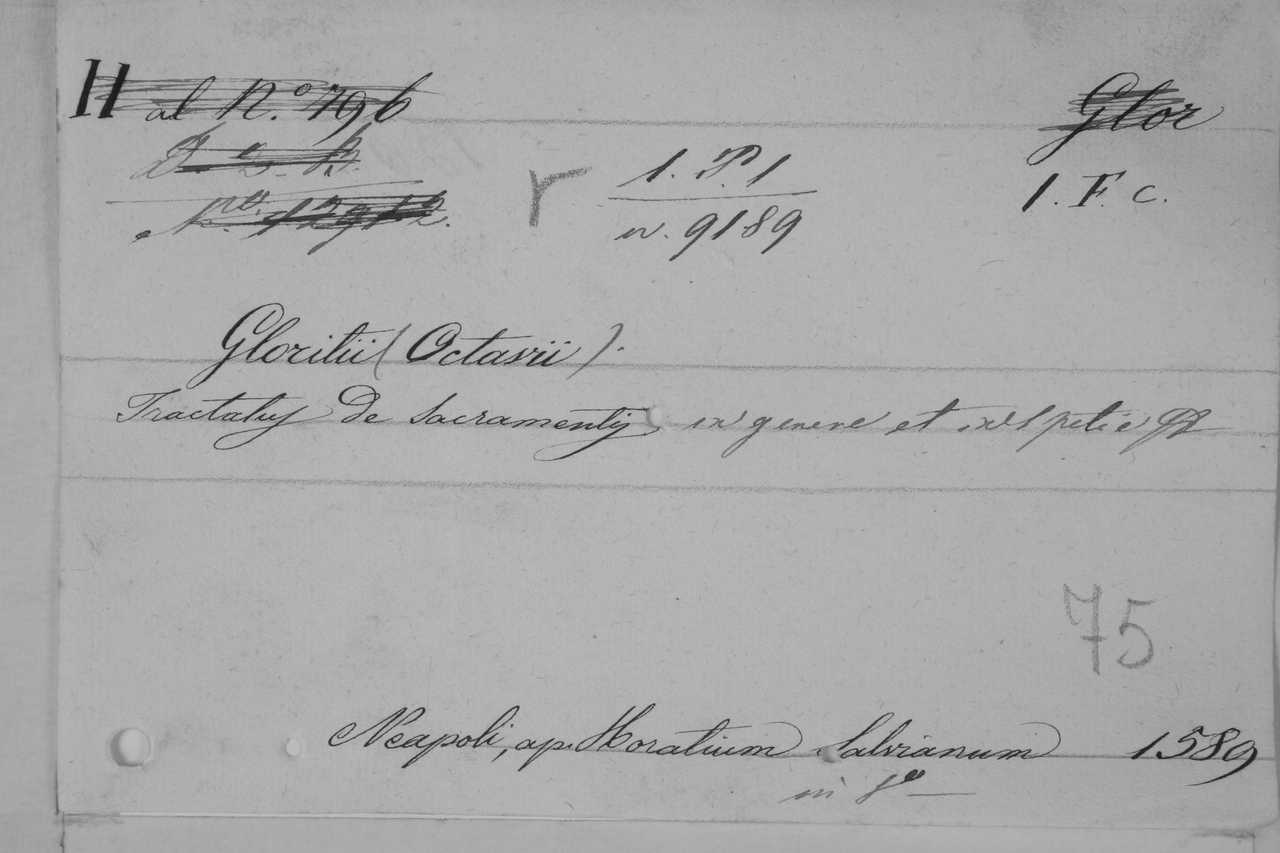 H al N.º 796
Glor
N.ro 12912.
r
1. P. 1
n. 9189
1. F. c.
Gloritii (Octavii).
Tractatus De Sacramentis in genere et in spetie
75
Neapoli, ap. Horatium Salvianum 1589
in 8º